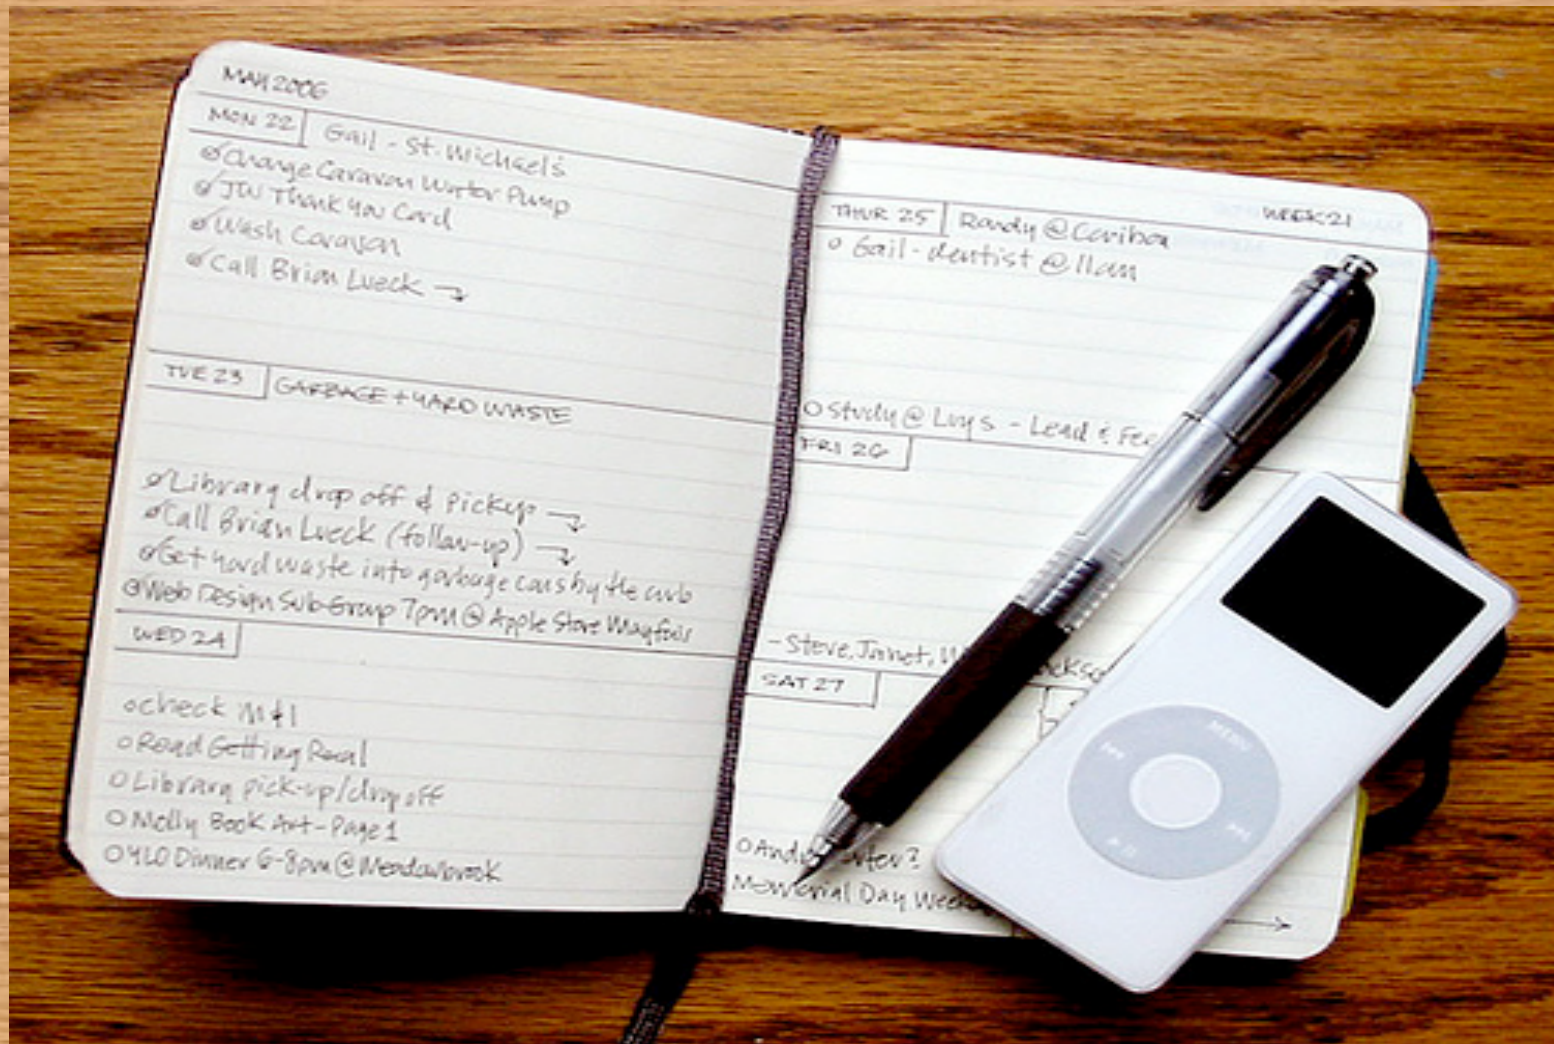 MAY 2006
MON 22 Gail - St. Michael's
Change Caravan Water Pump
JW Thank You Card
Wash Caravan
Call Brian Lueck →
TUE 23 GARBAGE + YARD WASTE
Library drop off & pickup →
Call Brian Lueck (follow-up) →
Get yard waste into garbage cans by the curb
Web Design Sub-Group 7pm @ Apple Store Mayfair
WED 24
check M&I
Read Getting Real
Library pick-up/drop off
Molly Book Art - Page 1
YLO Dinner 6-8pm @ Meadowbrook
WEEK 21
THUR 25 Randy @ Caribou
Gail - dentist @ 11am
Study @ Luys - Lead &
FRI 26
- Steve, Janet,
SAT 27
Andy
Memorial Day →
MENU